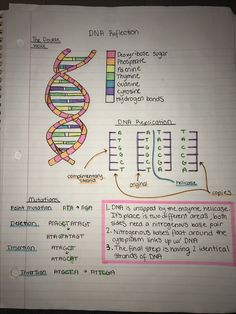 DNA Reflection
The Double
Helix
Deoxyribose sugar
Phosphate
Adenine
Thymine
Guanine
Cytosine
Hydrogen bonds
DNA Replication
A T A T
T A T A
G C G C
C G C G
T A T A
complimentary
strand
original
helicase
copies
Mutations
Point mutation ATA → AGA
Deletion ATAGTATAGT
ATATATAGT
Insertion ATAGT
ATAGAT
Inversion ATGGTA → ATTGGA
1. DNA is unzipped by the enzyme helicase
It's place is two different areas, both
sides need a nitrogenous base pair
2. Nitrogenous bases float around the
cytoplasm links up w/ DNA
3. The final step is having 2 identical
strands of DNA